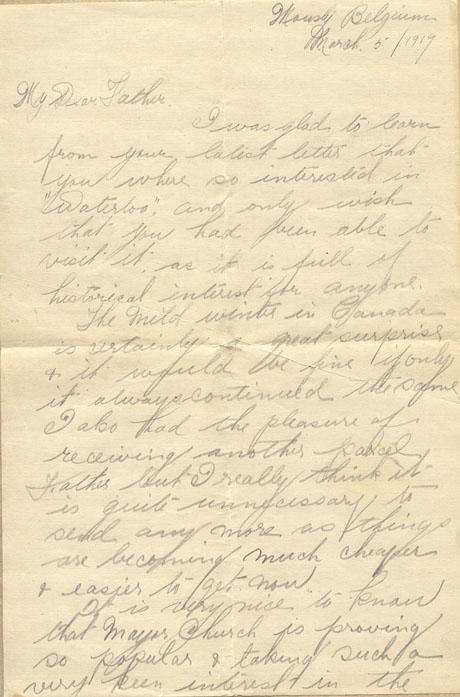 Mousty Belgium
March. 5/1919
My Dear Father.
I was glad to learn
from your latest letter that
you where so interested in
"Waterloo", and only wish
that you had been able to
visit it, as it is full of
historical interest for anyone.
The Mild winter in Canada
is certainly a great surprise
& it would be fine if only
it always continued the same
I also had the pleasure of
receiving another parcel
Father but I really think it
is quite unnecessary to
send any more as things
are becoming much cheaper
& easier to get now.
It is very nice to know
that Mayor Church is proving
so popular & taking such a
very keen interest in the